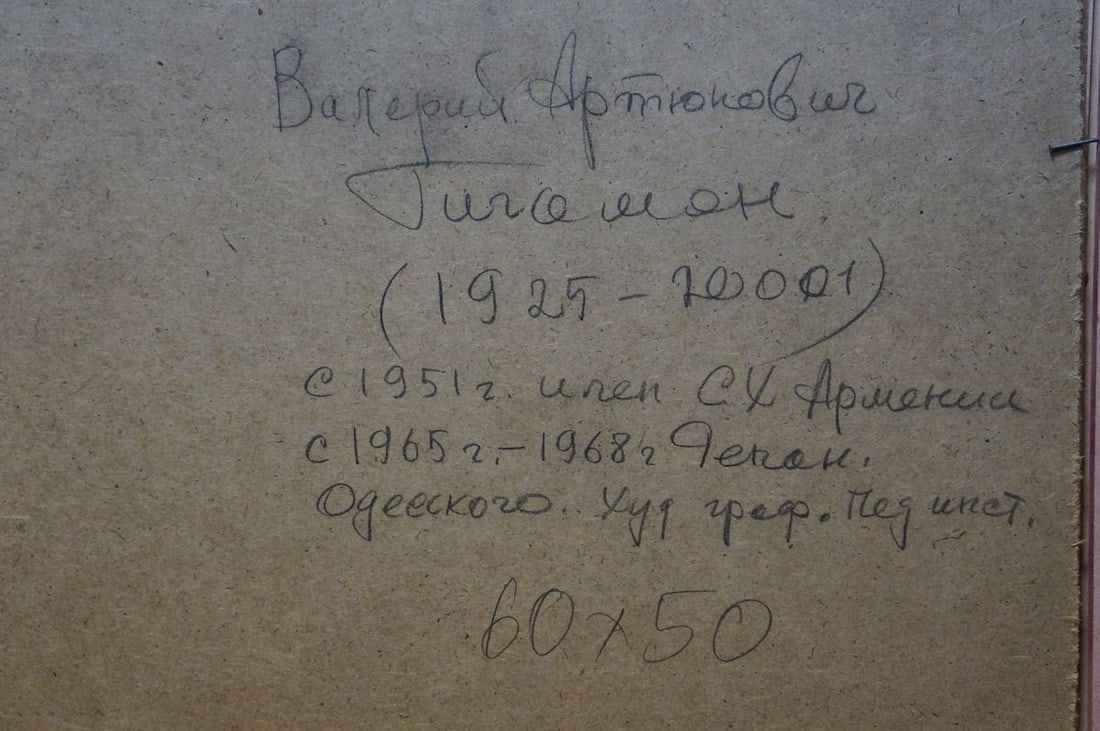 Валерий Артюнович
Гигамон
(1925 - 20001)
с 1951 г. член СХ Армении
с 1965 г. - 1968 г Декан.
Одесского. Худ граф. Пед инст.
60 х 50